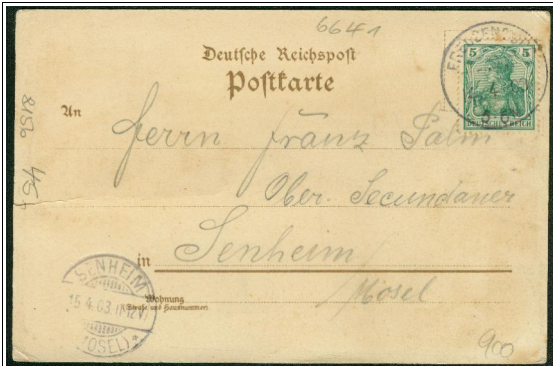 6641
Deutsche Reichspost
Postkarte
5 5
DEUTSCHES REICH
An
Herrn Franz Salm
Ober. Secundaner
in Senheim
/Mosel
Wohnung
(Straße und Hausnummer)
SENHEIM
15.4.03
(MOSEL) *
900
8156
45,